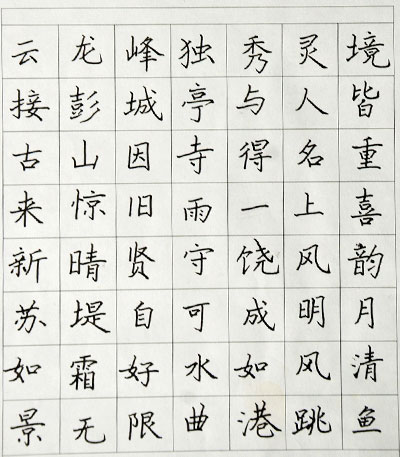 云龙峰独秀灵境
接彭城亭与人皆
古山因寺得名重
来惊旧雨一上喜
新晴贤守饶风韵
苏堤自可成明月
如霜好水如风清
景无限曲港跳鱼